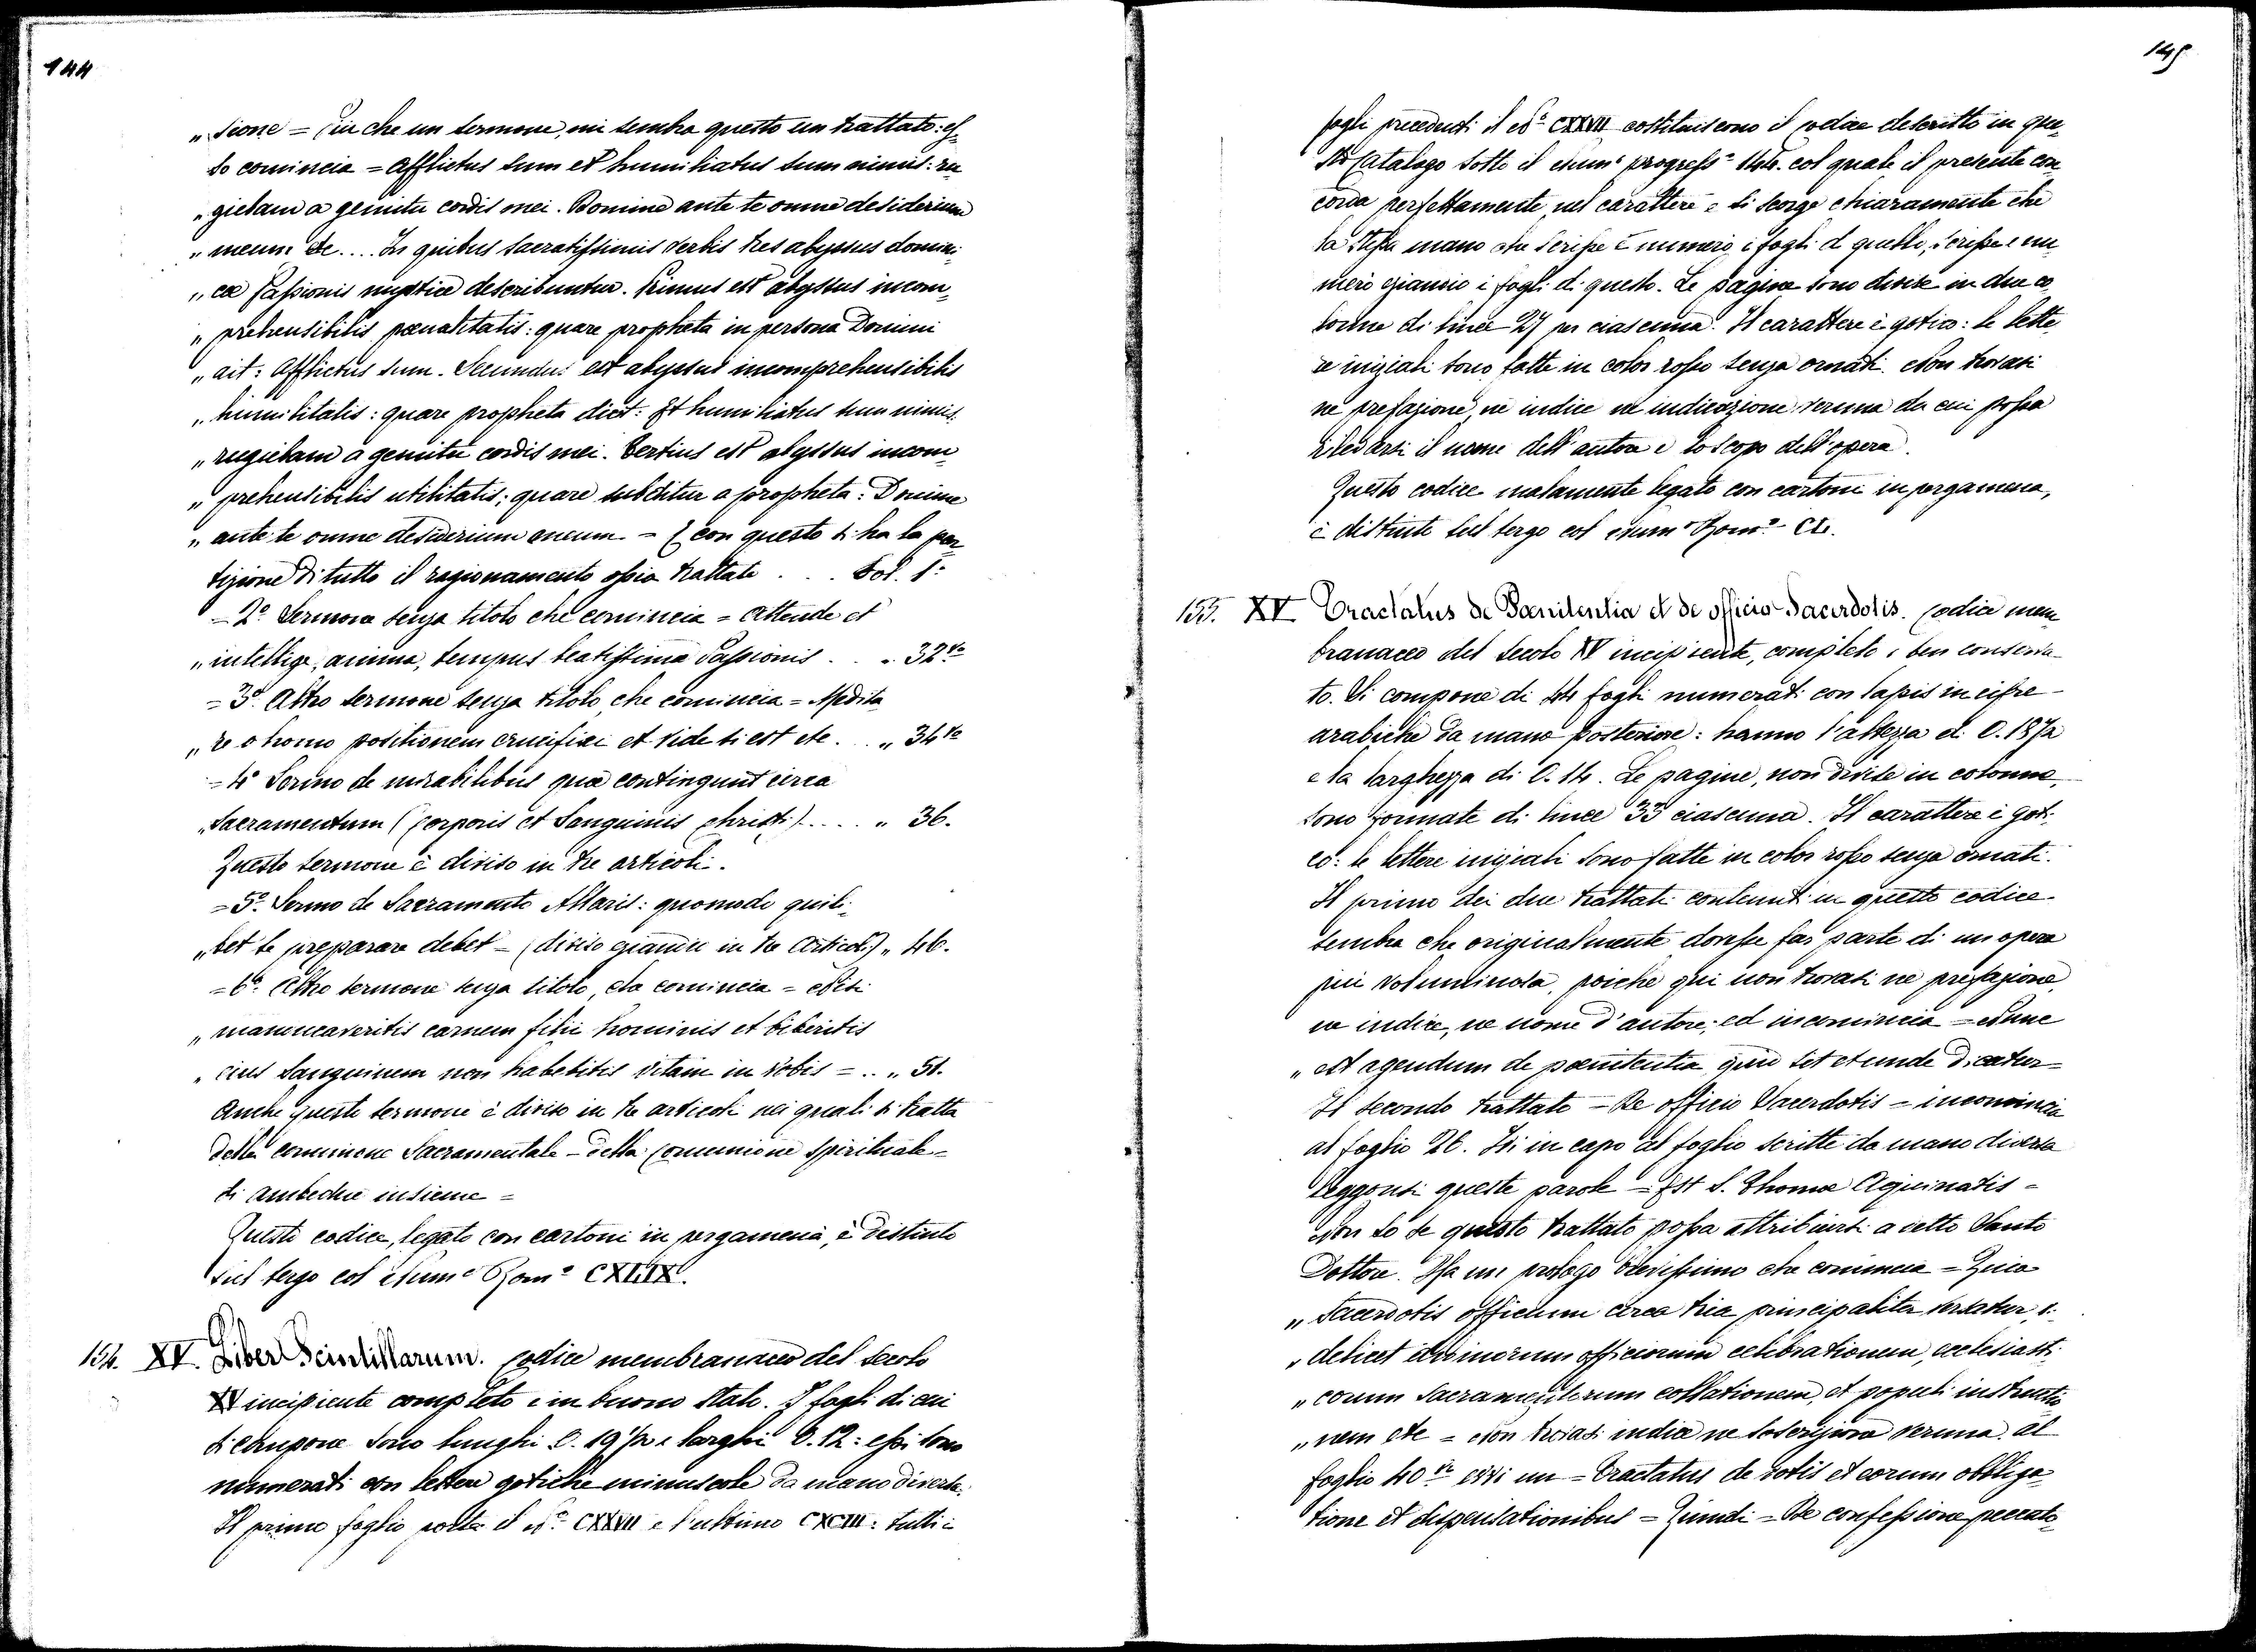 144
„ sione = Più che un sermone, mi sembra questo un trattato: es-
so comincia = Afflictus sum et humiliatus sum nimis: ru
„ giebam a gemitu cordis mei. Domine ante te omne desiderium
„ meum etc.... In quibus sacratissimis verbis tres abyssus domini
„ cæ Passionis mystice describuntur. Primus est abyssus incom-
„ prehensibilis pœnalitatis: quare propheta in persona Domini
„ ait: Afflictus sum. Secundus est abyssus incomprehensibilis
„ humilitatis: quare propheta dicit: Et humiliatus sum nimis:
„ rugiebam a gemitu cordis mei. Tertius est abyssus incom-
„ prehensibilis utilitatis; quare subditur a propheta: Domine
„ ante te omne desiderium meum - E con questo si ha la par
tizione di tutto il ragionamento ossia trattato . . . Fol. 1:
- 2º Sermone senza titolo che comincia = Attende et
„ intellige, anima, tempus beatissimæ Passionis . . „ 32 vo
= 3º. Altro sermone senza titolo, che comincia = Medita
„ re o homo positionem crucifixi et vide si est etc. . . „ 34 vo
= 4º Sermo de mirabilibus quæ contingunt circa
„ Sacramentum (Corporis et Sanguinis Christi) .... „ 36.
Questo sermone è diviso in tre articoli.
= 5º. Sermo de Sacramento Altaris: quomodo quili-
„ bet se præparare debet = (diviso eziandio in tre Articoli) „ 46.
= 6º. Altro sermone senza titolo, che comincia = Nisi
„ manducaveritis carnem filii hominis et biberitis
„ eius sanguinem non habebitis vitam in vobis = . . „ 51.
Anche questo sermone è diviso in tre articoli nei quali si tratta
della comunione Sacramentale - della Comunione Spirituale -
di ambedue insieme =
Questo codice, legato con cartoni in pergamena, è distinto
sul tergo col Numº Romº CXLIX.
154. XV. Liber Scintillarum. Codice membranaceo del secolo
XV incipiente completo e in buono stato. I fogli di cui
si compone sono lunghi C. 19 1/2 e larghi C. 12: essi sono
numerati con lettere gotiche minuscole da mano diversa.
Il primo foglio porta il Nº CXXVII e l'ultimo CXCIII: tutti i
145
fogli precedenti il Nº CXXVII costituiscono il Codice descritto in que-
sto Catalogo sotto il Numº progressº 144. col quale il presente con
corda perfettamente nel carattere e si scorge chiaramente che
la stessa mano che scrisse e numerò i fogli di quello, scrisse e nu
merò eziandio i fogli di questo. Le pagine sono divise in due co
lonne di linee 27 per ciascuna. Il carattere è gotico: le lette
re iniziali sono fatte in color rosso senza ornati. Non trovasi
nè prefazione, nè indice nè indicazione veruna da cui possa
rilevarsi il nome dell'autore e lo scopo dell'opera.
Questo codice malamente legato con cartoni in pergamena,
è distinto sul tergo col Numº Romº CL.
155. XV Tractatus de Pœnitentia et de officio Sacerdotis. Codice mem
branaceo del secolo XV incipiente, completo e ben conserva-
to. Si compone di 44 fogli numerati con lapis in cifre -
arabiche da mano posteriore: hanno l'altezza di C. 18 1/2
e la larghezza di C. 14. Le pagine, non divise in colonne,
sono formate di linee 33 ciascuna. Il carattere è goti-
co: le lettere iniziali sono fatte in color rosso senza ornati.
Il primo dei due trattati contenuti in questo codice
sembra che originalmente dovesse far parte di un opera
più voluminosa, poichè qui non trovasi nè prefazione,
nè indice, nè nome d'autore; ed incomincia = Nunc
„ est agendum de pœnitentia quid sit et unde dicatur =
Il secondo trattato - De officio Sacerdotis - incomincia
al foglio 26. Ivi in capo al foglio scritte da mano diversa
leggonsi queste parole = Est S. Thomæ Aquinatis -
Non so se questo trattato possa attribuirsi a detto Santo
Dottore. Ha un prologo brevissimo che comincia = Quia
„ Sacerdotis officium circa tria principaliter versatur, vi-
„ delicet divinorum officiorum celebrationem, ecclesiasti-
„ corum Sacramentorum collationem, et populi instructio
„ nem etc = Non trovasi indice nè soscrizione veruna. Al
foglio 40 vo evvi un = Tractatus de votis et eorum obliga-
tione et dispensationibus = Quindi = De confessione peccato-